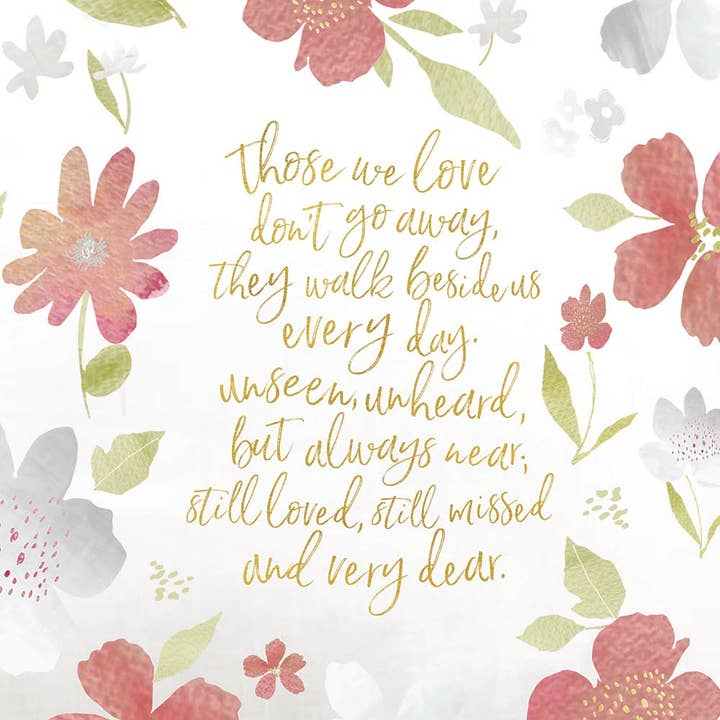 Those we love
don't go away,
they walk beside us
every day.
unseen, unheard,
but always near;
still loved, still missed
and very dear.